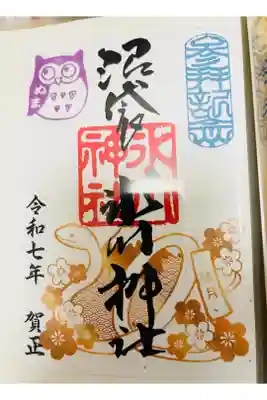 参拝記念
沼袋氷川神社
氷川神社
ぬま
令和七年 賀正